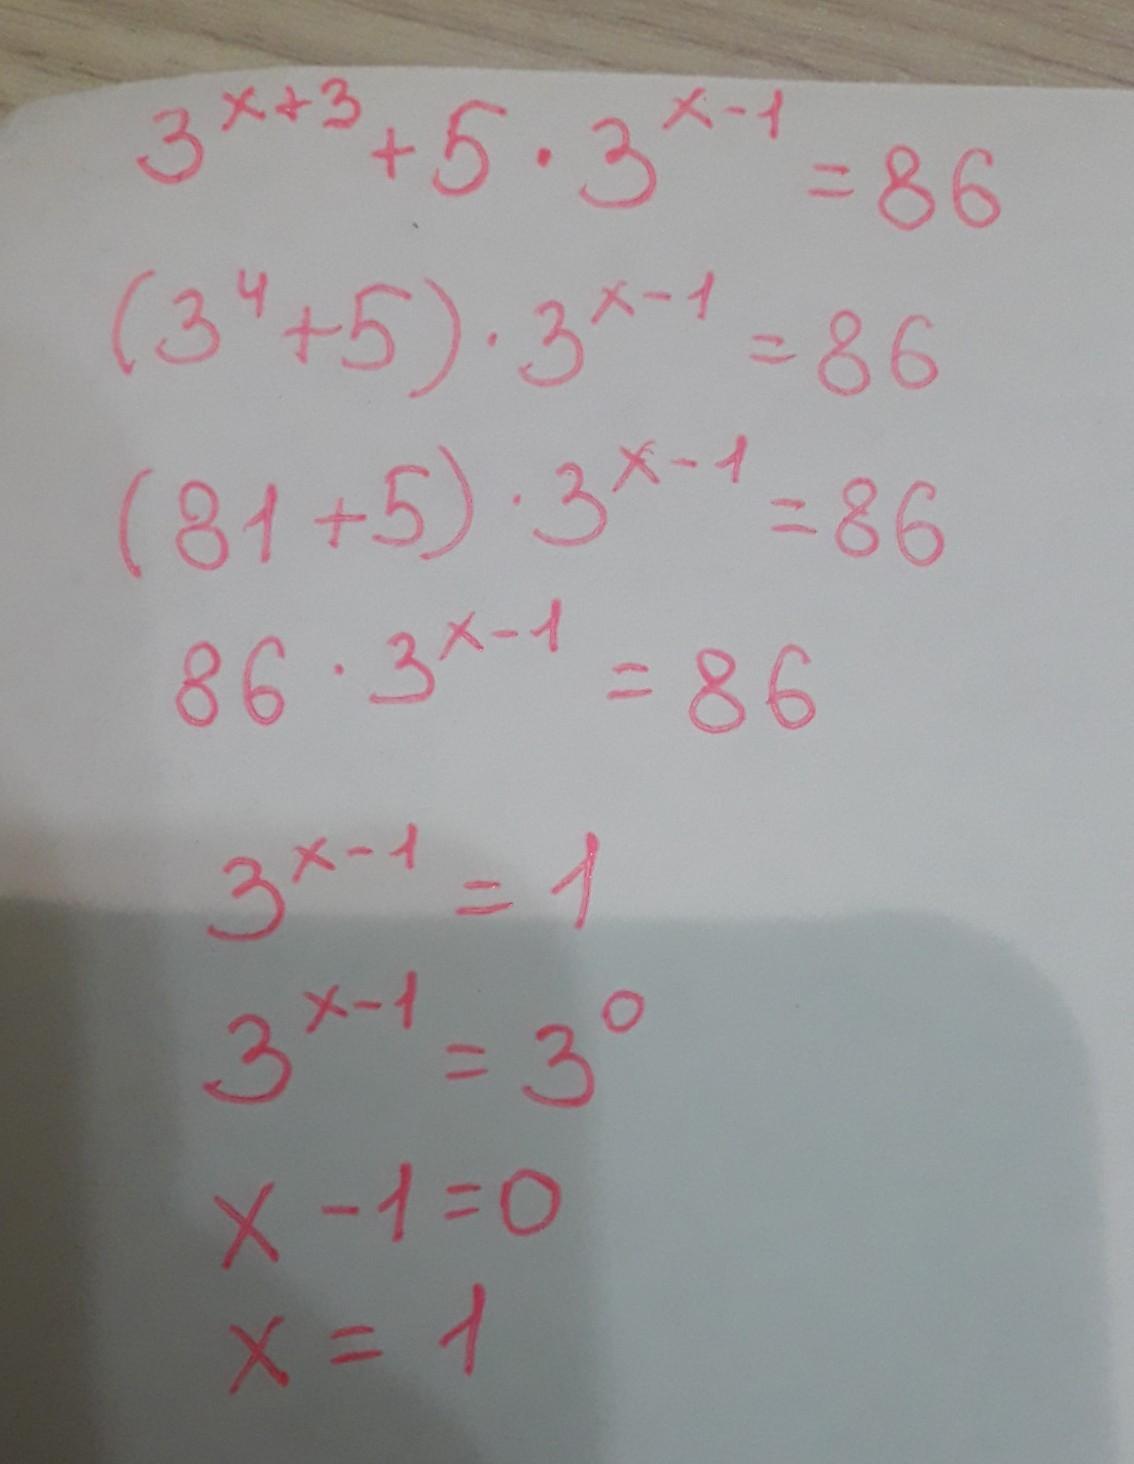 3^{x+3} + 5 · 3^{x-1} = 86
(3^4 + 5) · 3^{x-1} = 86
(81 + 5) · 3^{x-1} = 86
86 · 3^{x-1} = 86
3^{x-1} = 1
3^{x-1} = 3^0
x - 1 = 0
x = 1